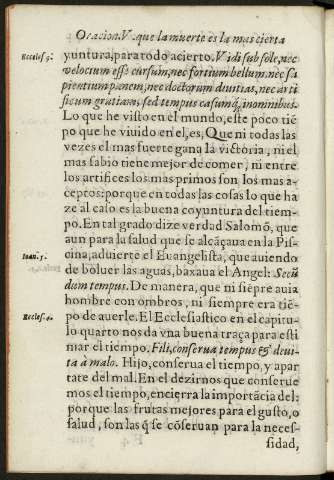 Oracion. V. que la muerte es la mas cierta
Eccles. 9.
yuntura, para todo acierto. Vidi sub sole, nec
velocium esse cursum, nec fortium bellum, nec sa
pientium panem, nec doctorum diuitias, nec arti
ficum gratiam, sed tempus casumq̃ in omnibus.
Lo que he visto en el mundo, este poco tiẽ
po que he viuido en el, es, Que ni todas las
vezes el mas fuerte gana la victoria, ni el
mas sabio tiene mejor de comer, ni entre
los artifices los mas primos son los mas a-
ceptos: porque en todas las cosas lo que ha
ze al caso es la buena coyuntura del tiem-
po. En tal grado dize verdad Salomõ, que
aun para la salud que se alcãçaua en la Pis-
Ioan. 5.
cina, aduierte el Euangelista, que auiendo
de boluer las aguas, baxaua el Angel: Secũ
dum tempus. De manera, que ni siẽpre auia
hombre con ombros, ni siempre era tiẽ-
Eccles. 4.
po de auerle. El Ecclesiastico en el capitu-
lo quarto nos da vna buena traça para esti
mar el tiempo. Fili, conserua tempus & deui-
ta à malo. Hijo, conserua el tiempo, y apar
tate del mal. En el dezirnos que conserue
mos el tiempo, encierra la importãcia del:
porque las frutas mejores, para el gusto, o
salud, son las q̃ se cõseruan para la neces-
sidad,